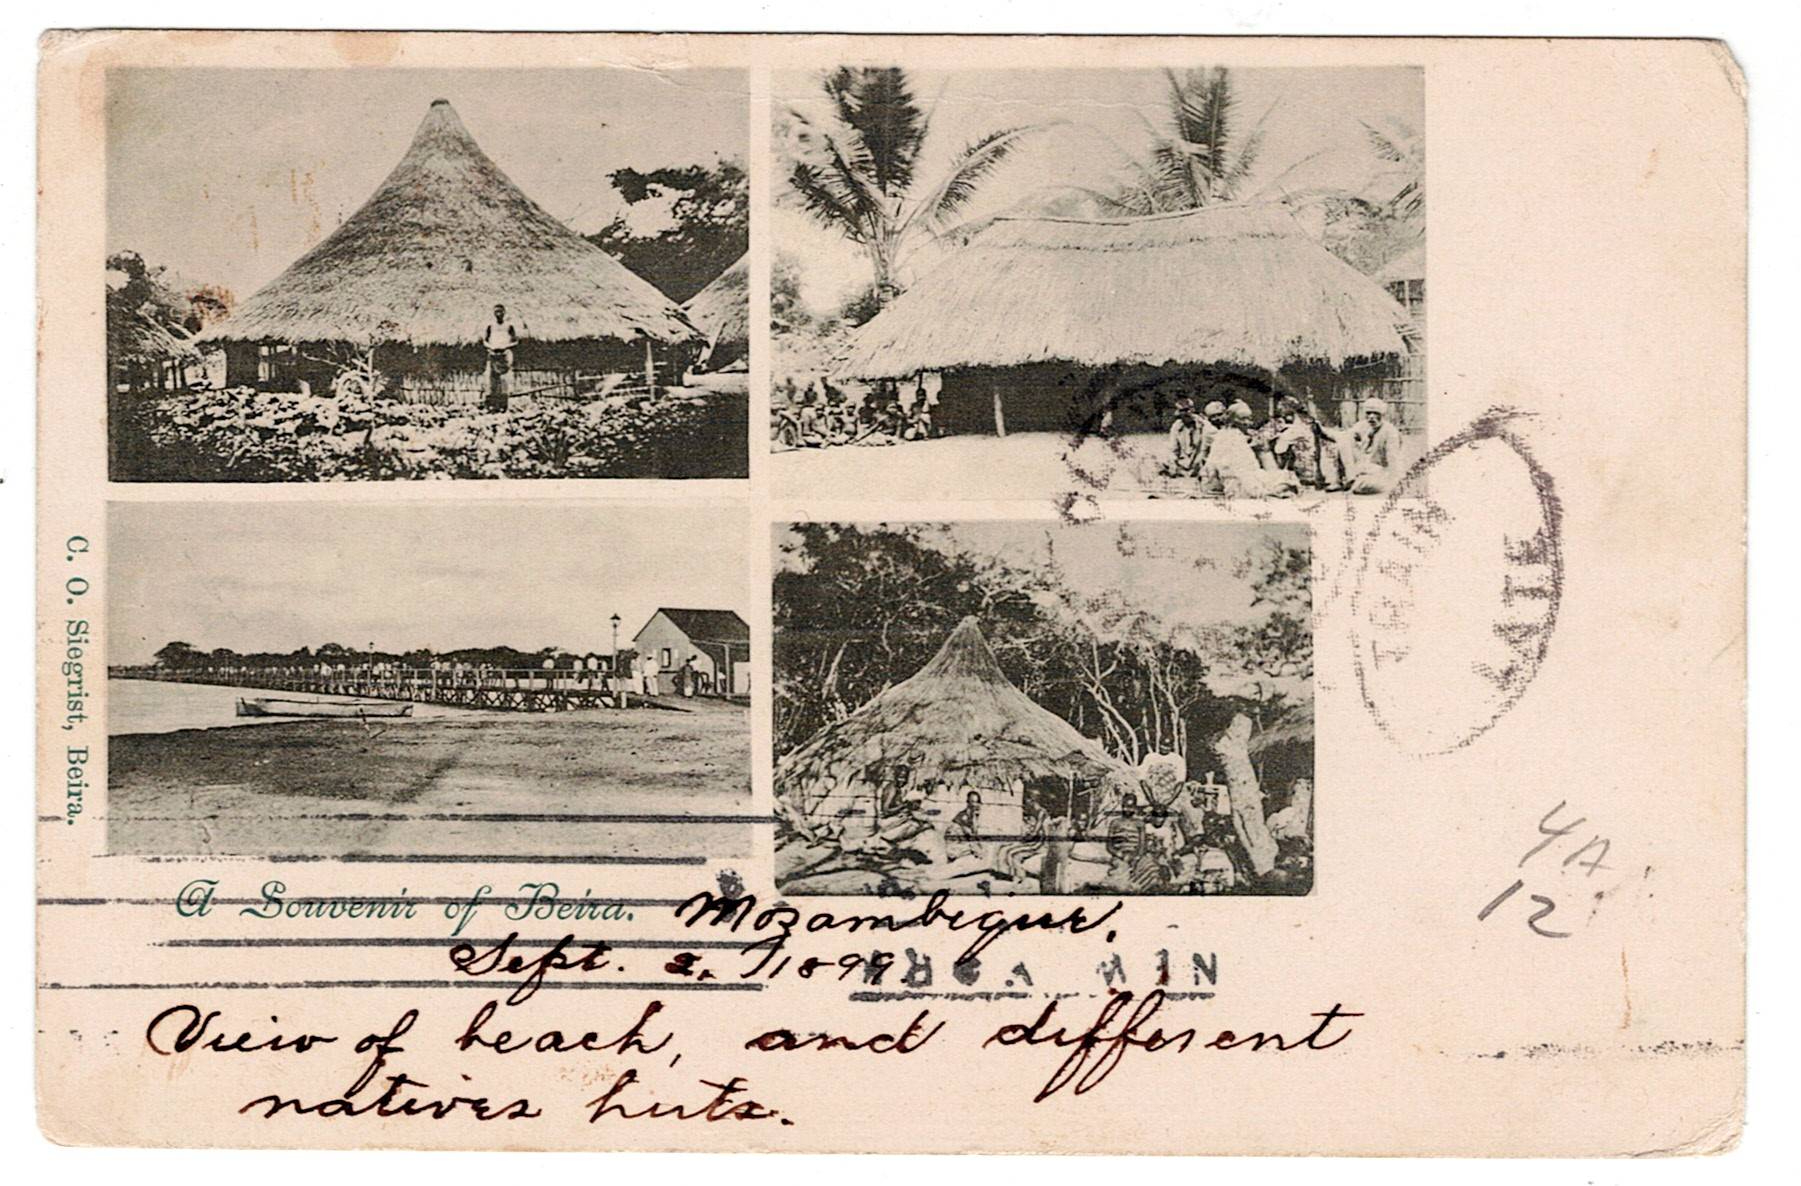 C. O. Siegrist, Beira.
A Souvenir of Beira. Mozambique.
Sept. 2. 1899
View of beach, and different
natives huts.
NEW YORK
TRAIN
LATE
4A
12